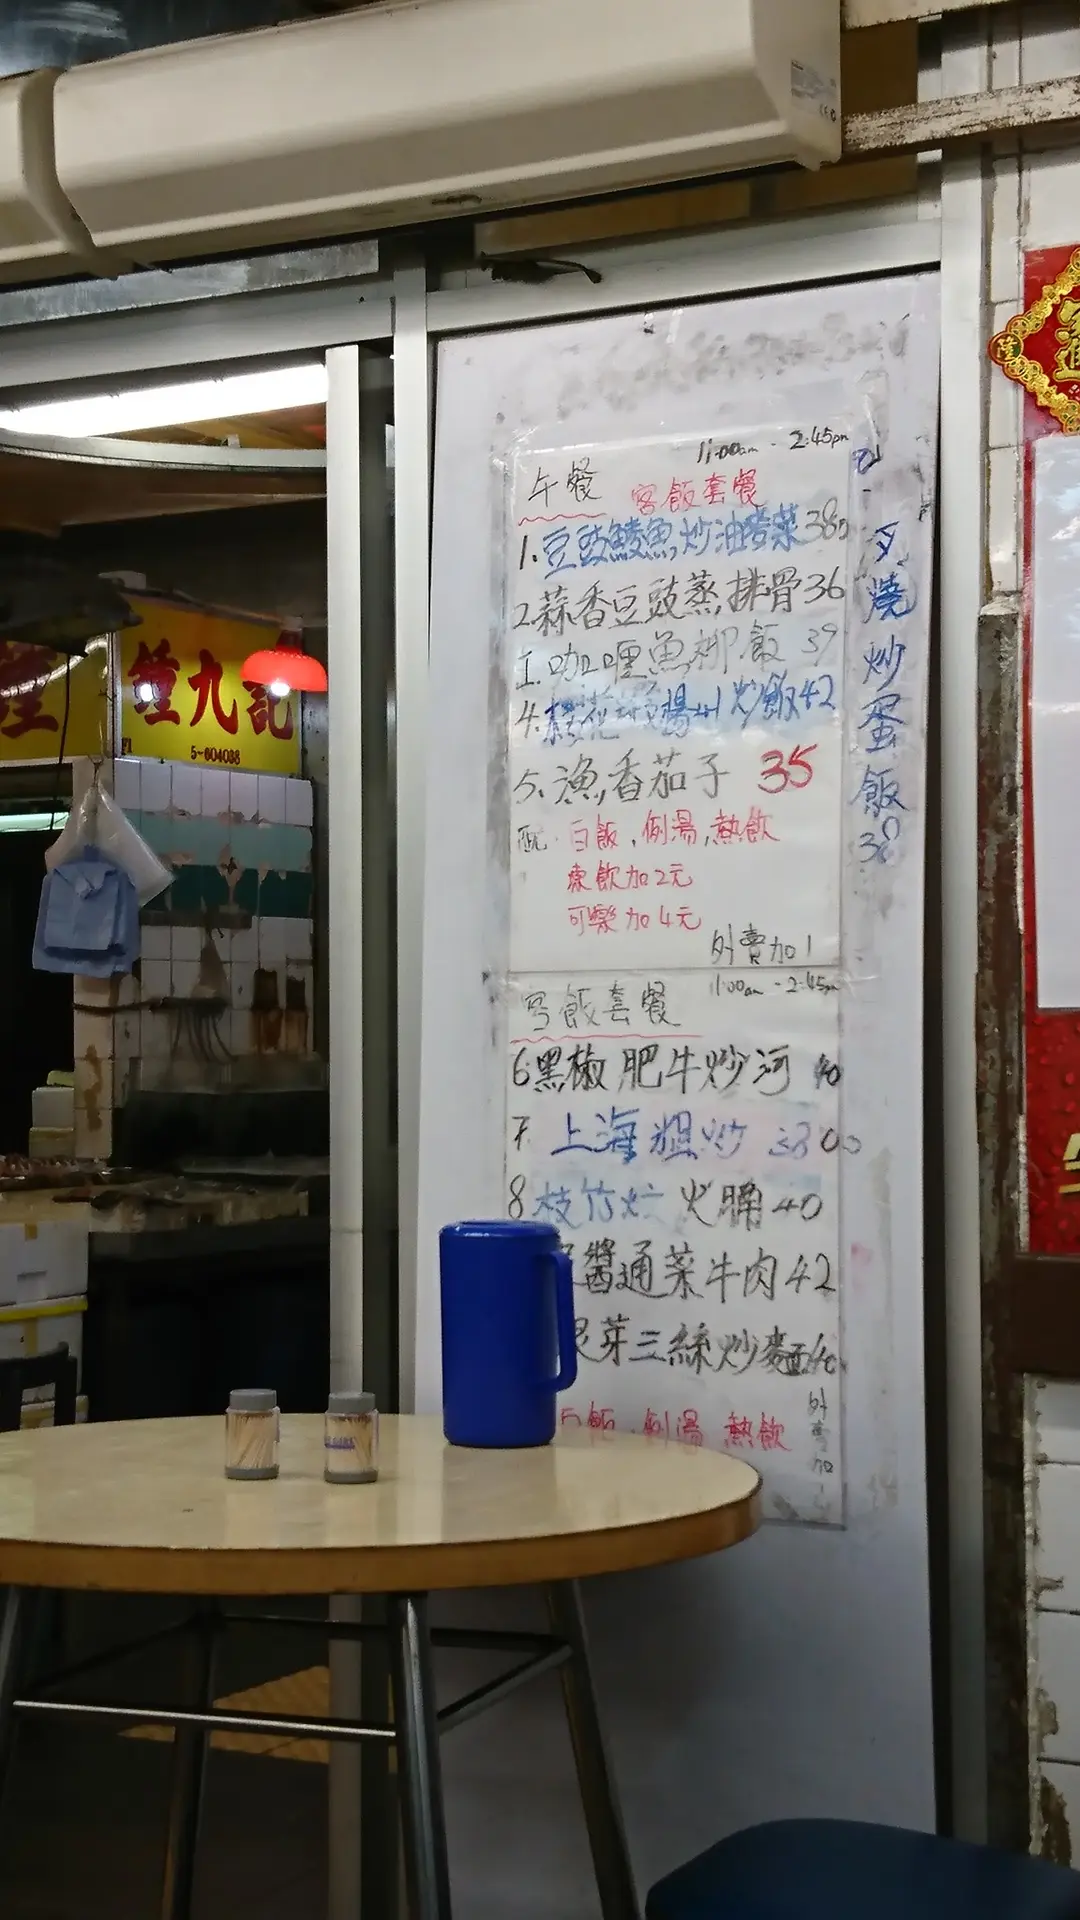 鍾九記
5-604038
隆
11:00am - 2:45pm
午餐 客飯套餐
1. 豆豉鯪魚炒油麥菜 38
2. 蒜香豆豉蒸排骨 36
咖喱魚柳飯 39
4. 炒飯 42
5. 漁香茄子 35
配. 白飯, 例湯, 熱飲
凍飲加2元
可樂加4元
外賣加1
叉燒炒蛋飯 38
11:00am - 2:45pm
客飯套餐
6. 黑椒肥牛炒河 40
7. 上海粗炒 38
8 枝竹炆火腩 40
醬通菜牛肉 42
芽三絲炒麵 40
飯 例湯 熱飲
外賣加1